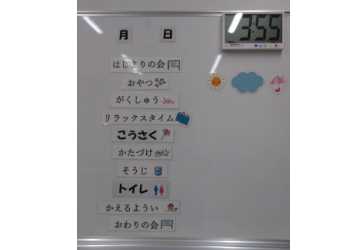 月 日
3:55
はじまりの会
おやつ
がくしゅう
リラックスタイム
こうさく
かたづけ
そうじ
トイレ
かえるようい
おわりの会